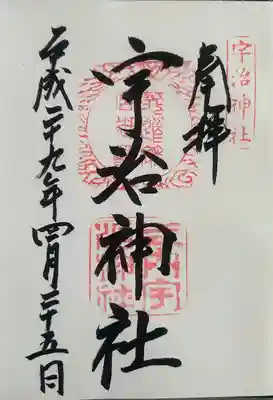 宇治神社
奉拝
宇治神社
平成二十九年四月二十五日